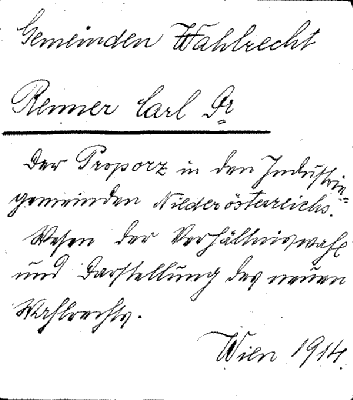 Gemeinden Wahlrecht
Renner Carl Dr
Der Proporz in den Industrie=
gemeinden Niederösterreichs.
Wesen der Verhältniswahl
und Darstellung des neuen
Wahlrechts.
Wien 1914.